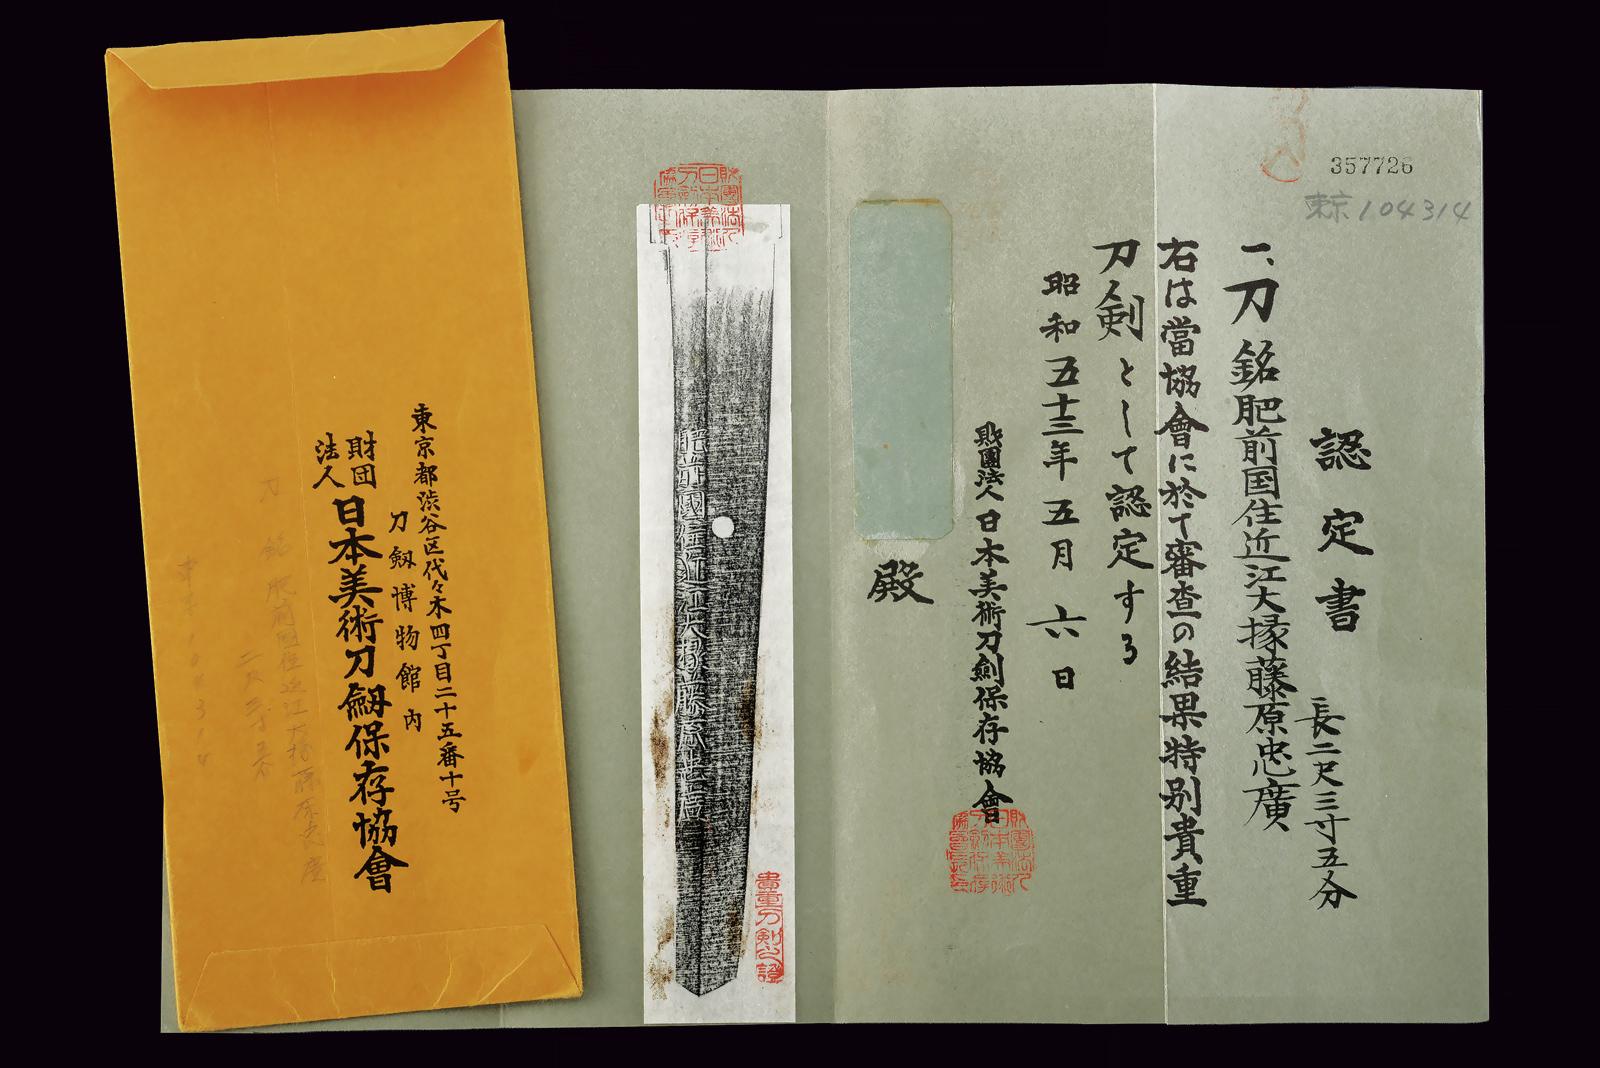 357726
東京104314
認定書
一、刀 銘肥前国住近江大掾藤原忠廣
長二尺三寸五分
右は當協會に於て審査の結果特別貴重
刀剣として認定する
昭和五十三年五月六日
財團法人日本美術刀劍保存協會
殿
財團法人日本美術刀劍保存協會
肥前國住近江大掾藤原忠廣
貴重刀剣之證
東京都渋谷区代々木四丁目二十五番十号
刀劔博物館内
財団法人
日本美術刀劔保存協會
刀 銘 肥前国住近江大掾藤原忠廣
二尺三寸五分
東京104314